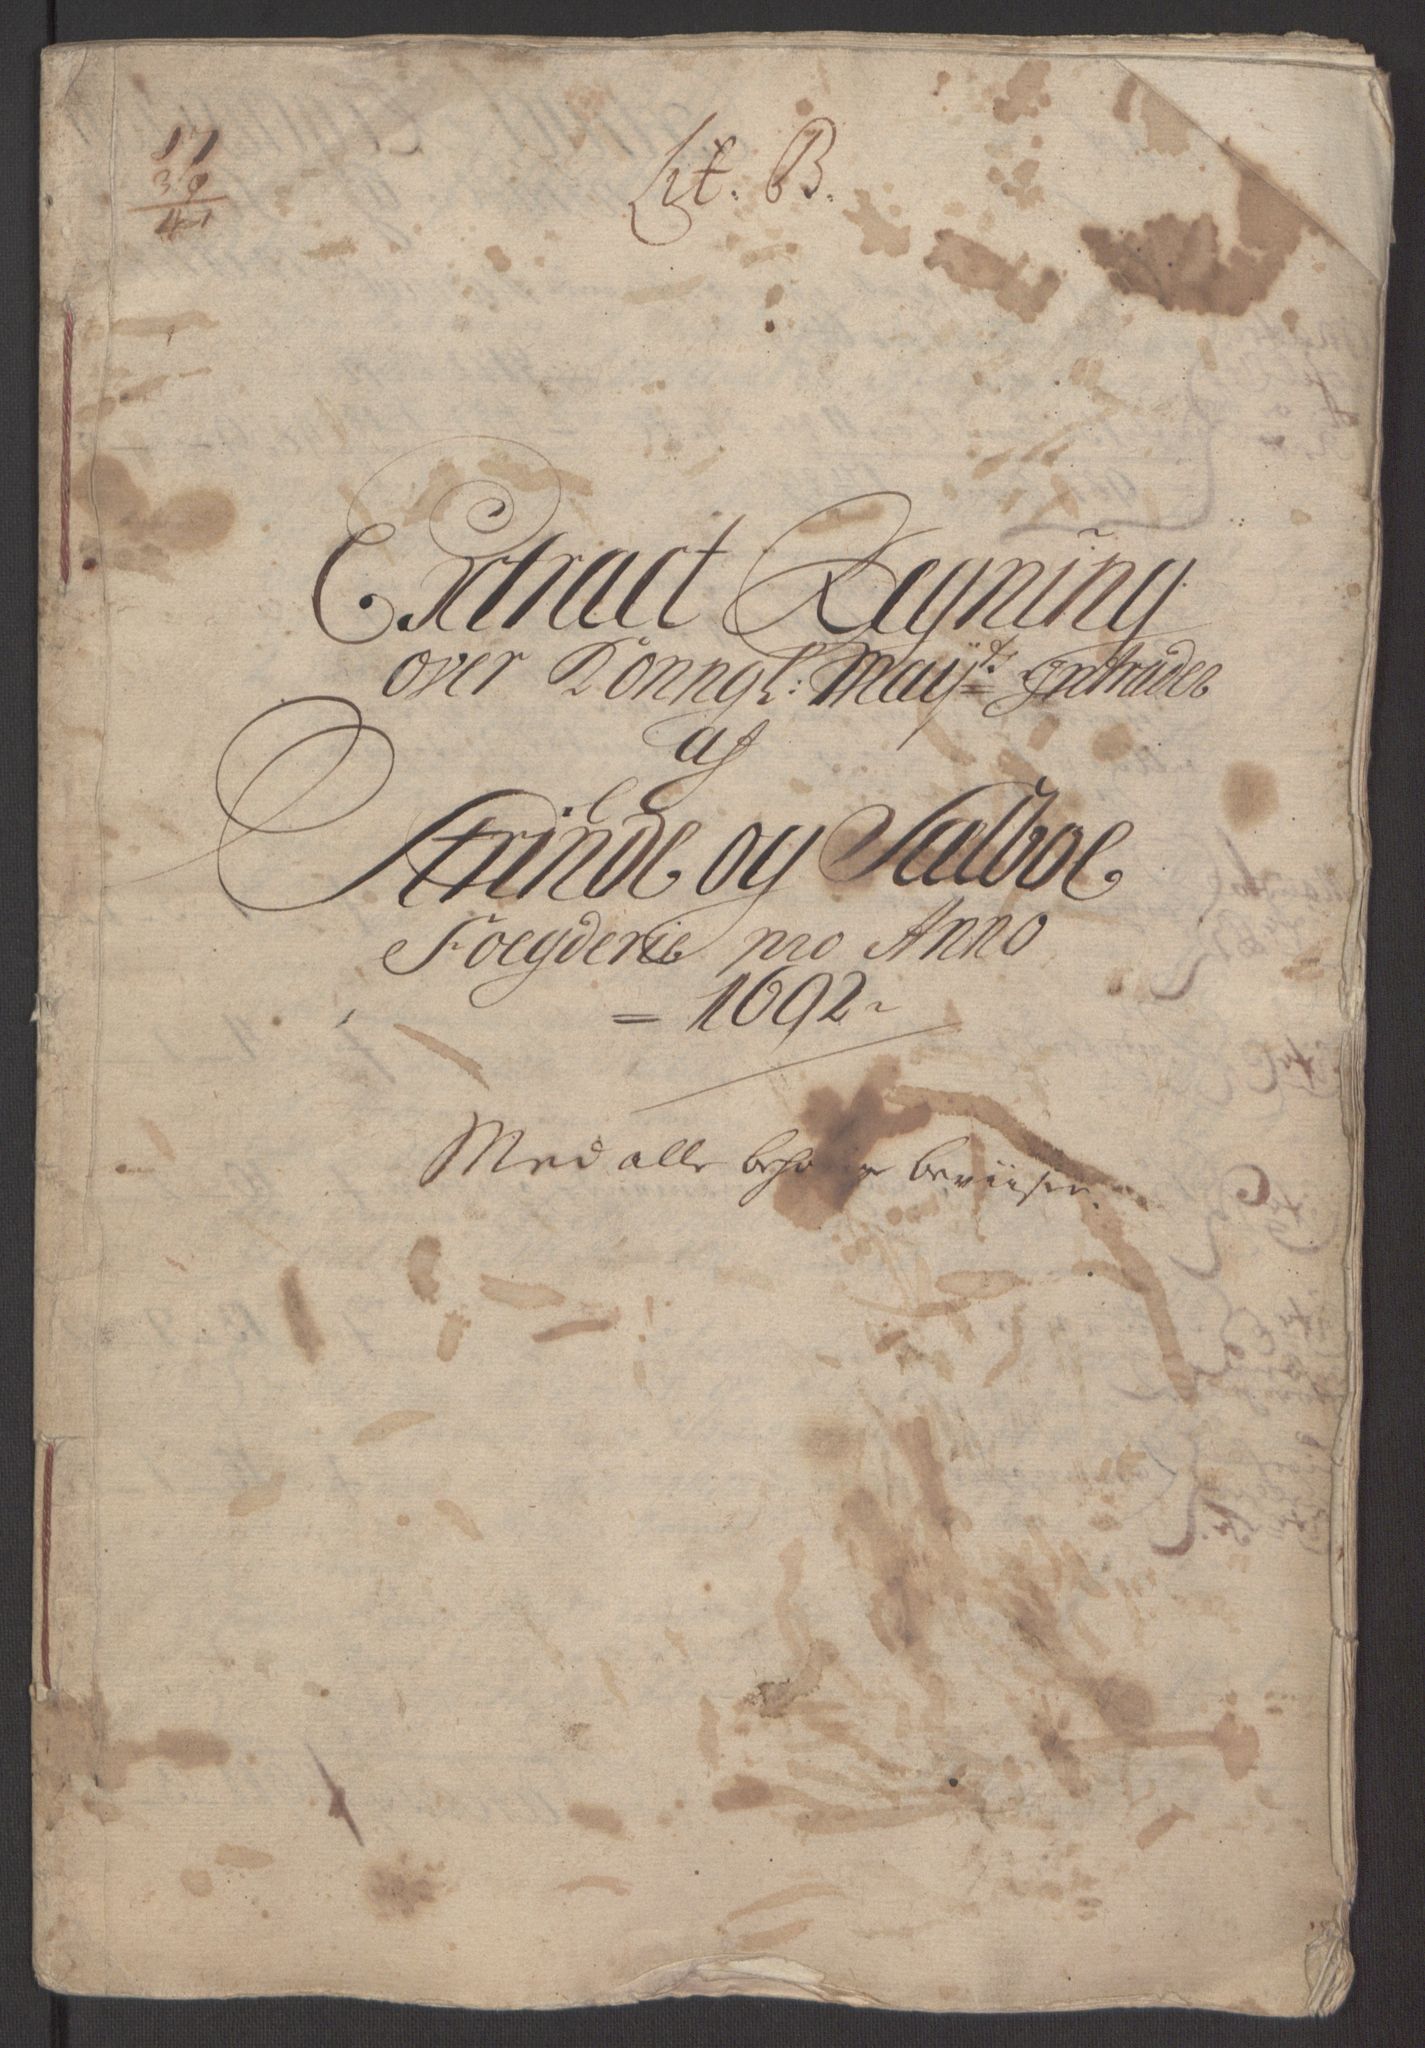 17
39
41
Lit. B.
Extract Regning
over Konngl: Mayts Intrader
af
Strinde og Sælboe
Foegderie pro Anno
= 1692 ~
Med alle behørige beviiser.